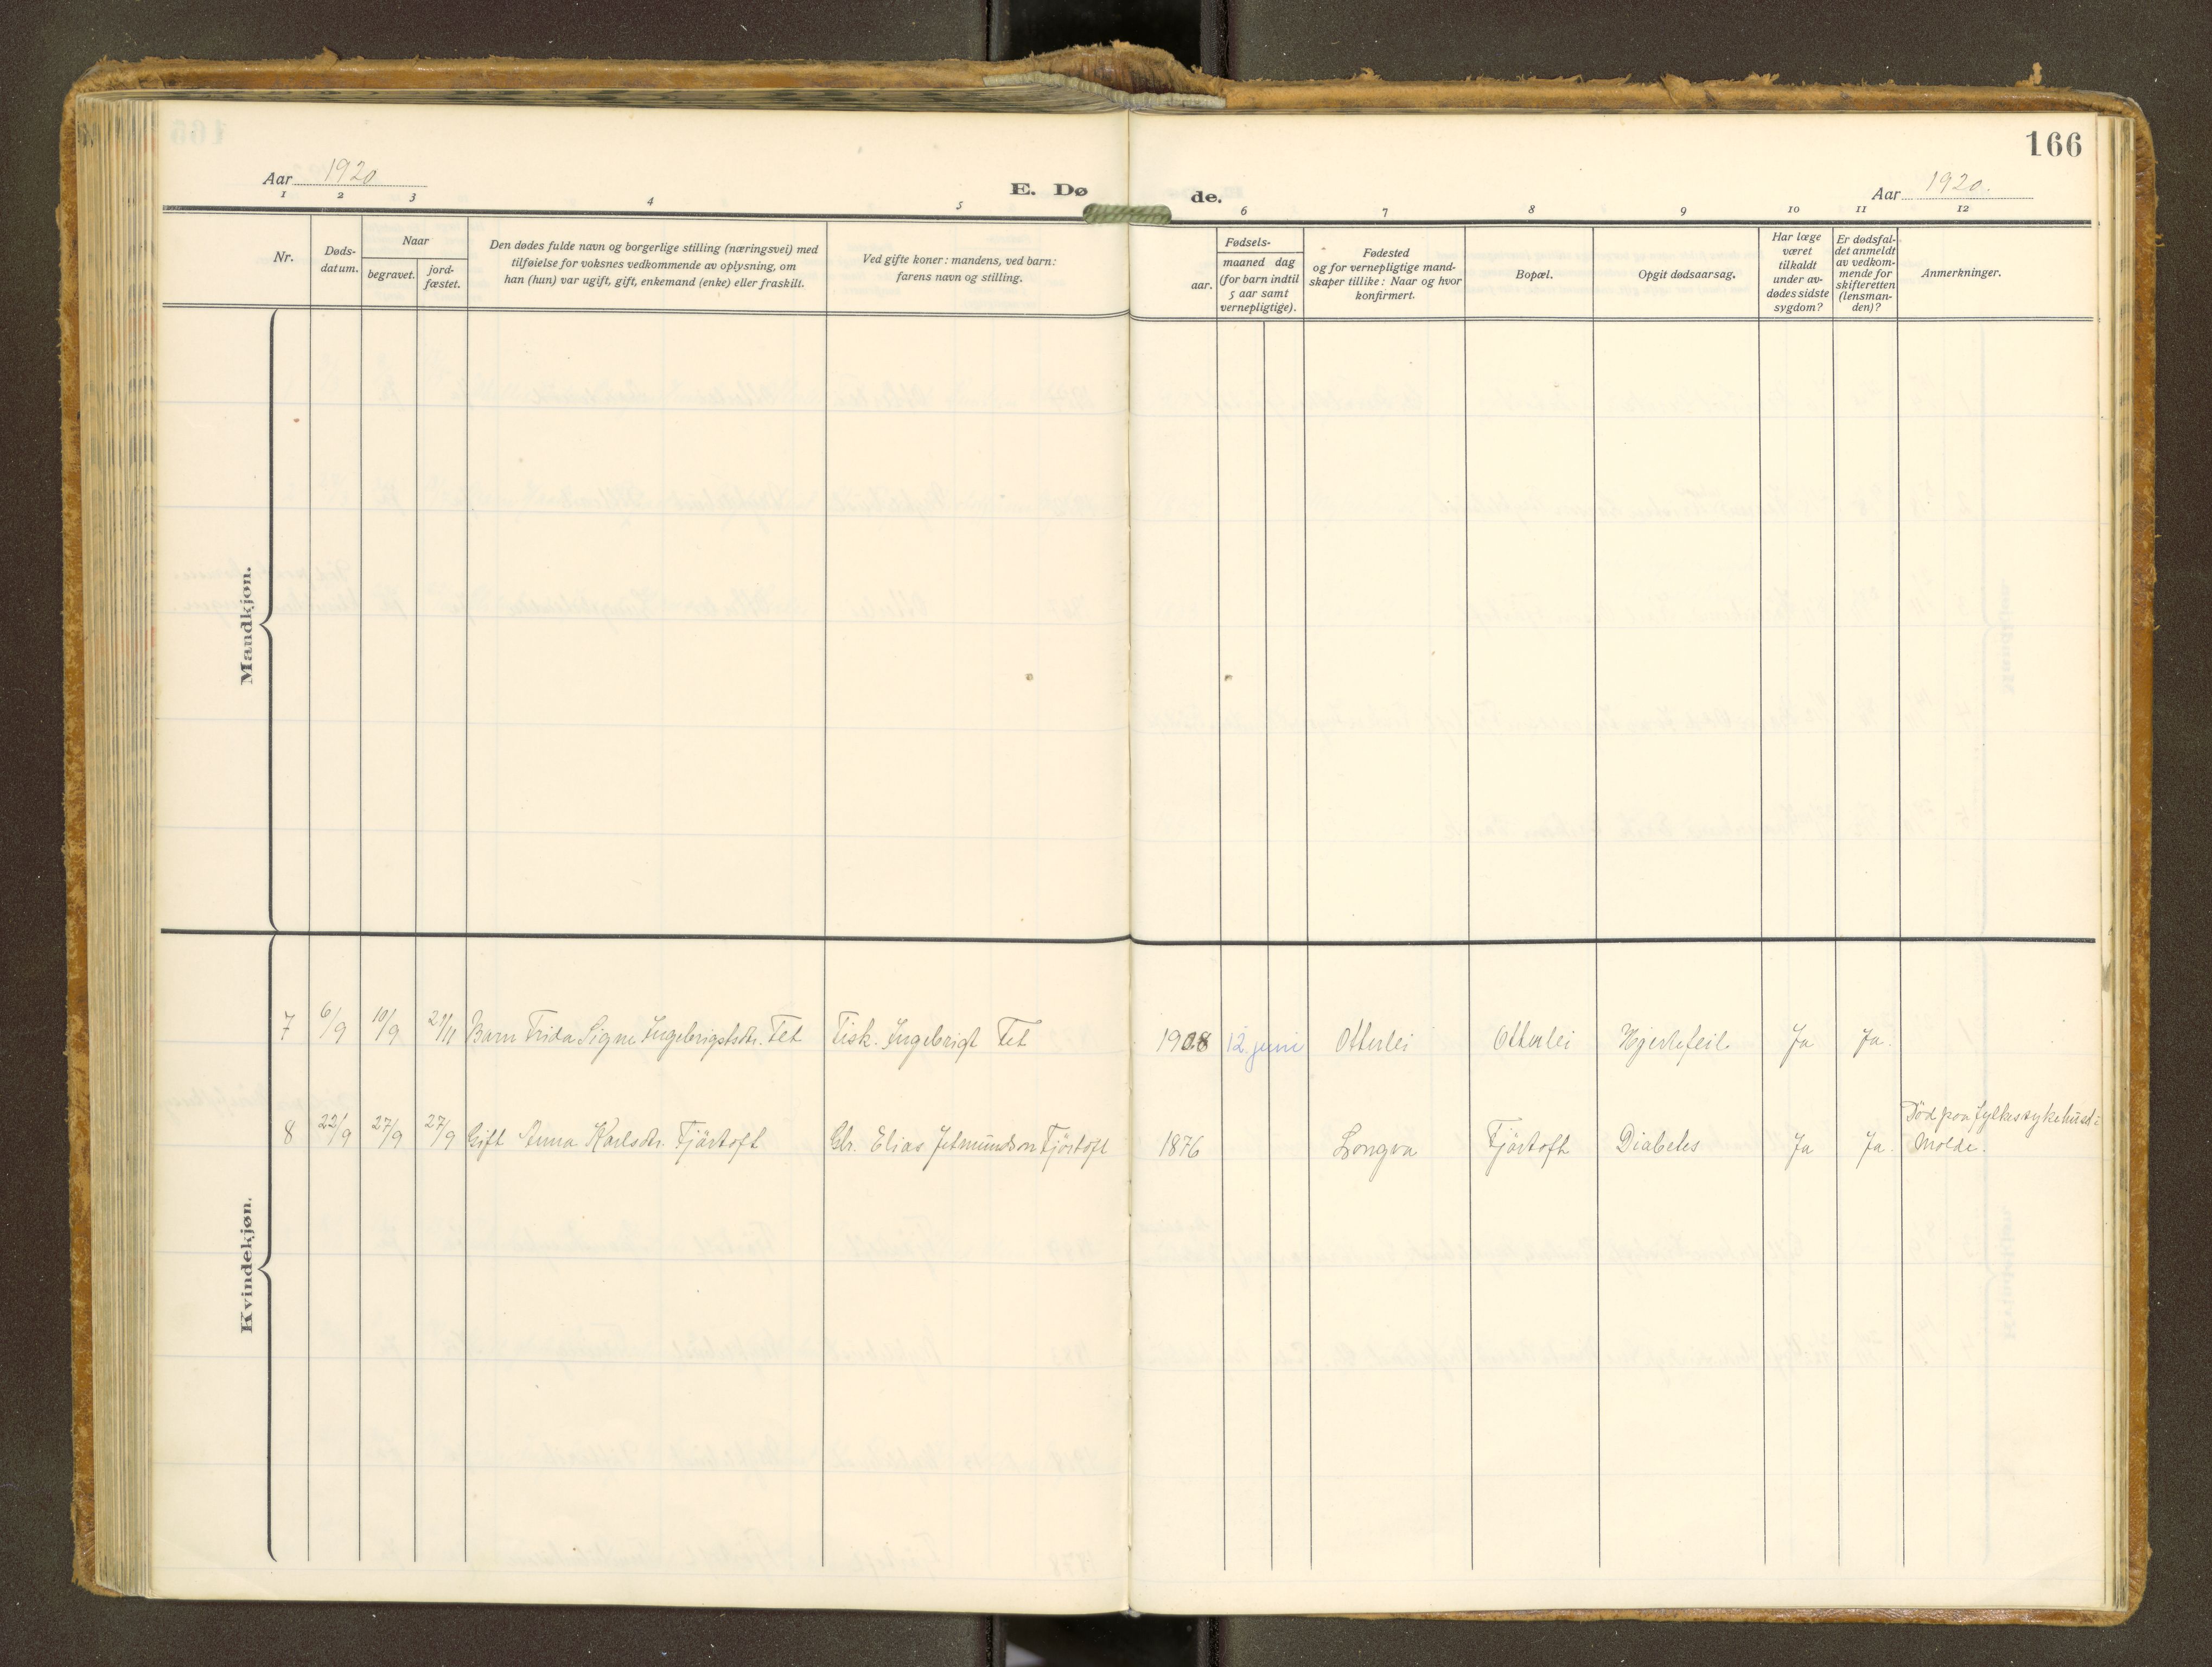 166
Aar 1920
E. Dø de.
Aar 1920.
1 2 3 4 5 6 7 8 9 10 11 12
Nr.
Døds-
datum.
Naar
begravet.
jord-
fæstet.
Den dødes fulde navn og borgerlige stilling (næringsvei) med
tilføielse for voksnes vedkommende av oplysning, om
han (hun) var ugift, gift, enkemand (enke) eller fraskilt.
Ved gifte koner: mandens, ved barn:
farens navn og stilling.
Fødsels-
aar.
maaned dag
(for barn indtil
5 aar samt
vernepligtige).
Fødested
og for vernepligtige mand-
skaper tillike: Naar og hvor
konfirmert.
Bopæl.
Opgit dødsaarsag.
Har læge
været
tilkaldt
under av-
dødes sidste
sygdom?
Er dødsfal-
det anmeldt
av vedkom-
mende for
skifteretten
(lensman-
den)?
Anmerkninger.
Mandkjøn.
Kvindekjøn.
7 6/9 10/9 21/11 Barn Frida Signe Ingebrigtsdtr. Fet Fisk. Ingebrigt Fet 1918 12 juni Otterlei Otterlei Hjertefeil Ja Ja.
8 22/9 27/9 27/9 Gift Anna Karlsdtr. Fjörtoft Gbr. Elias Jetmundson Fjörtoft 1876 Longva Fjörtoft Diabetes Ja Ja. Död paa fylkessykehuset i
Molde.